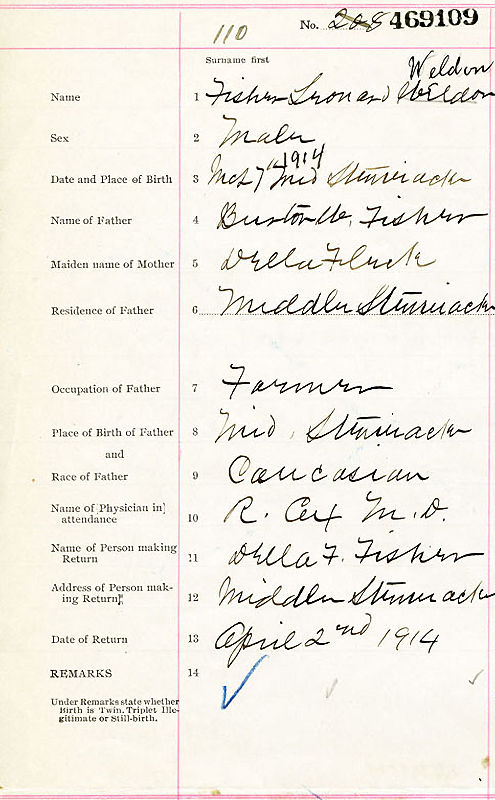 110 No. 208 469109
Surname first
Weldon
Name 1 Fisher Leonard Weldon
Sex 2 Male
1914
Date and Place of Birth 3 Mch 7th Mid Stewiacke
Name of Father 4 Burton W. Fisher
Maiden name of Mother 5 Della Fluck
Residence of Father 6 Middle Stewiacke
Occupation of Father 7 Farmer
Place of Birth of Father 8 Mid. Stewiacke
and
Race of Father 9 Caucasian
Name of Physician in
attendance 10 R. Cox M.D.
Name of Person making
Return 11 Della F. Fisher
Address of Person mak-
ing Return 12 Middle Stewiacke
Date of Return 13 April 2nd 1914
REMARKS 14
Under Remarks state whether
Birth is Twin, Triplet Ille-
gitimate or Still-birth.